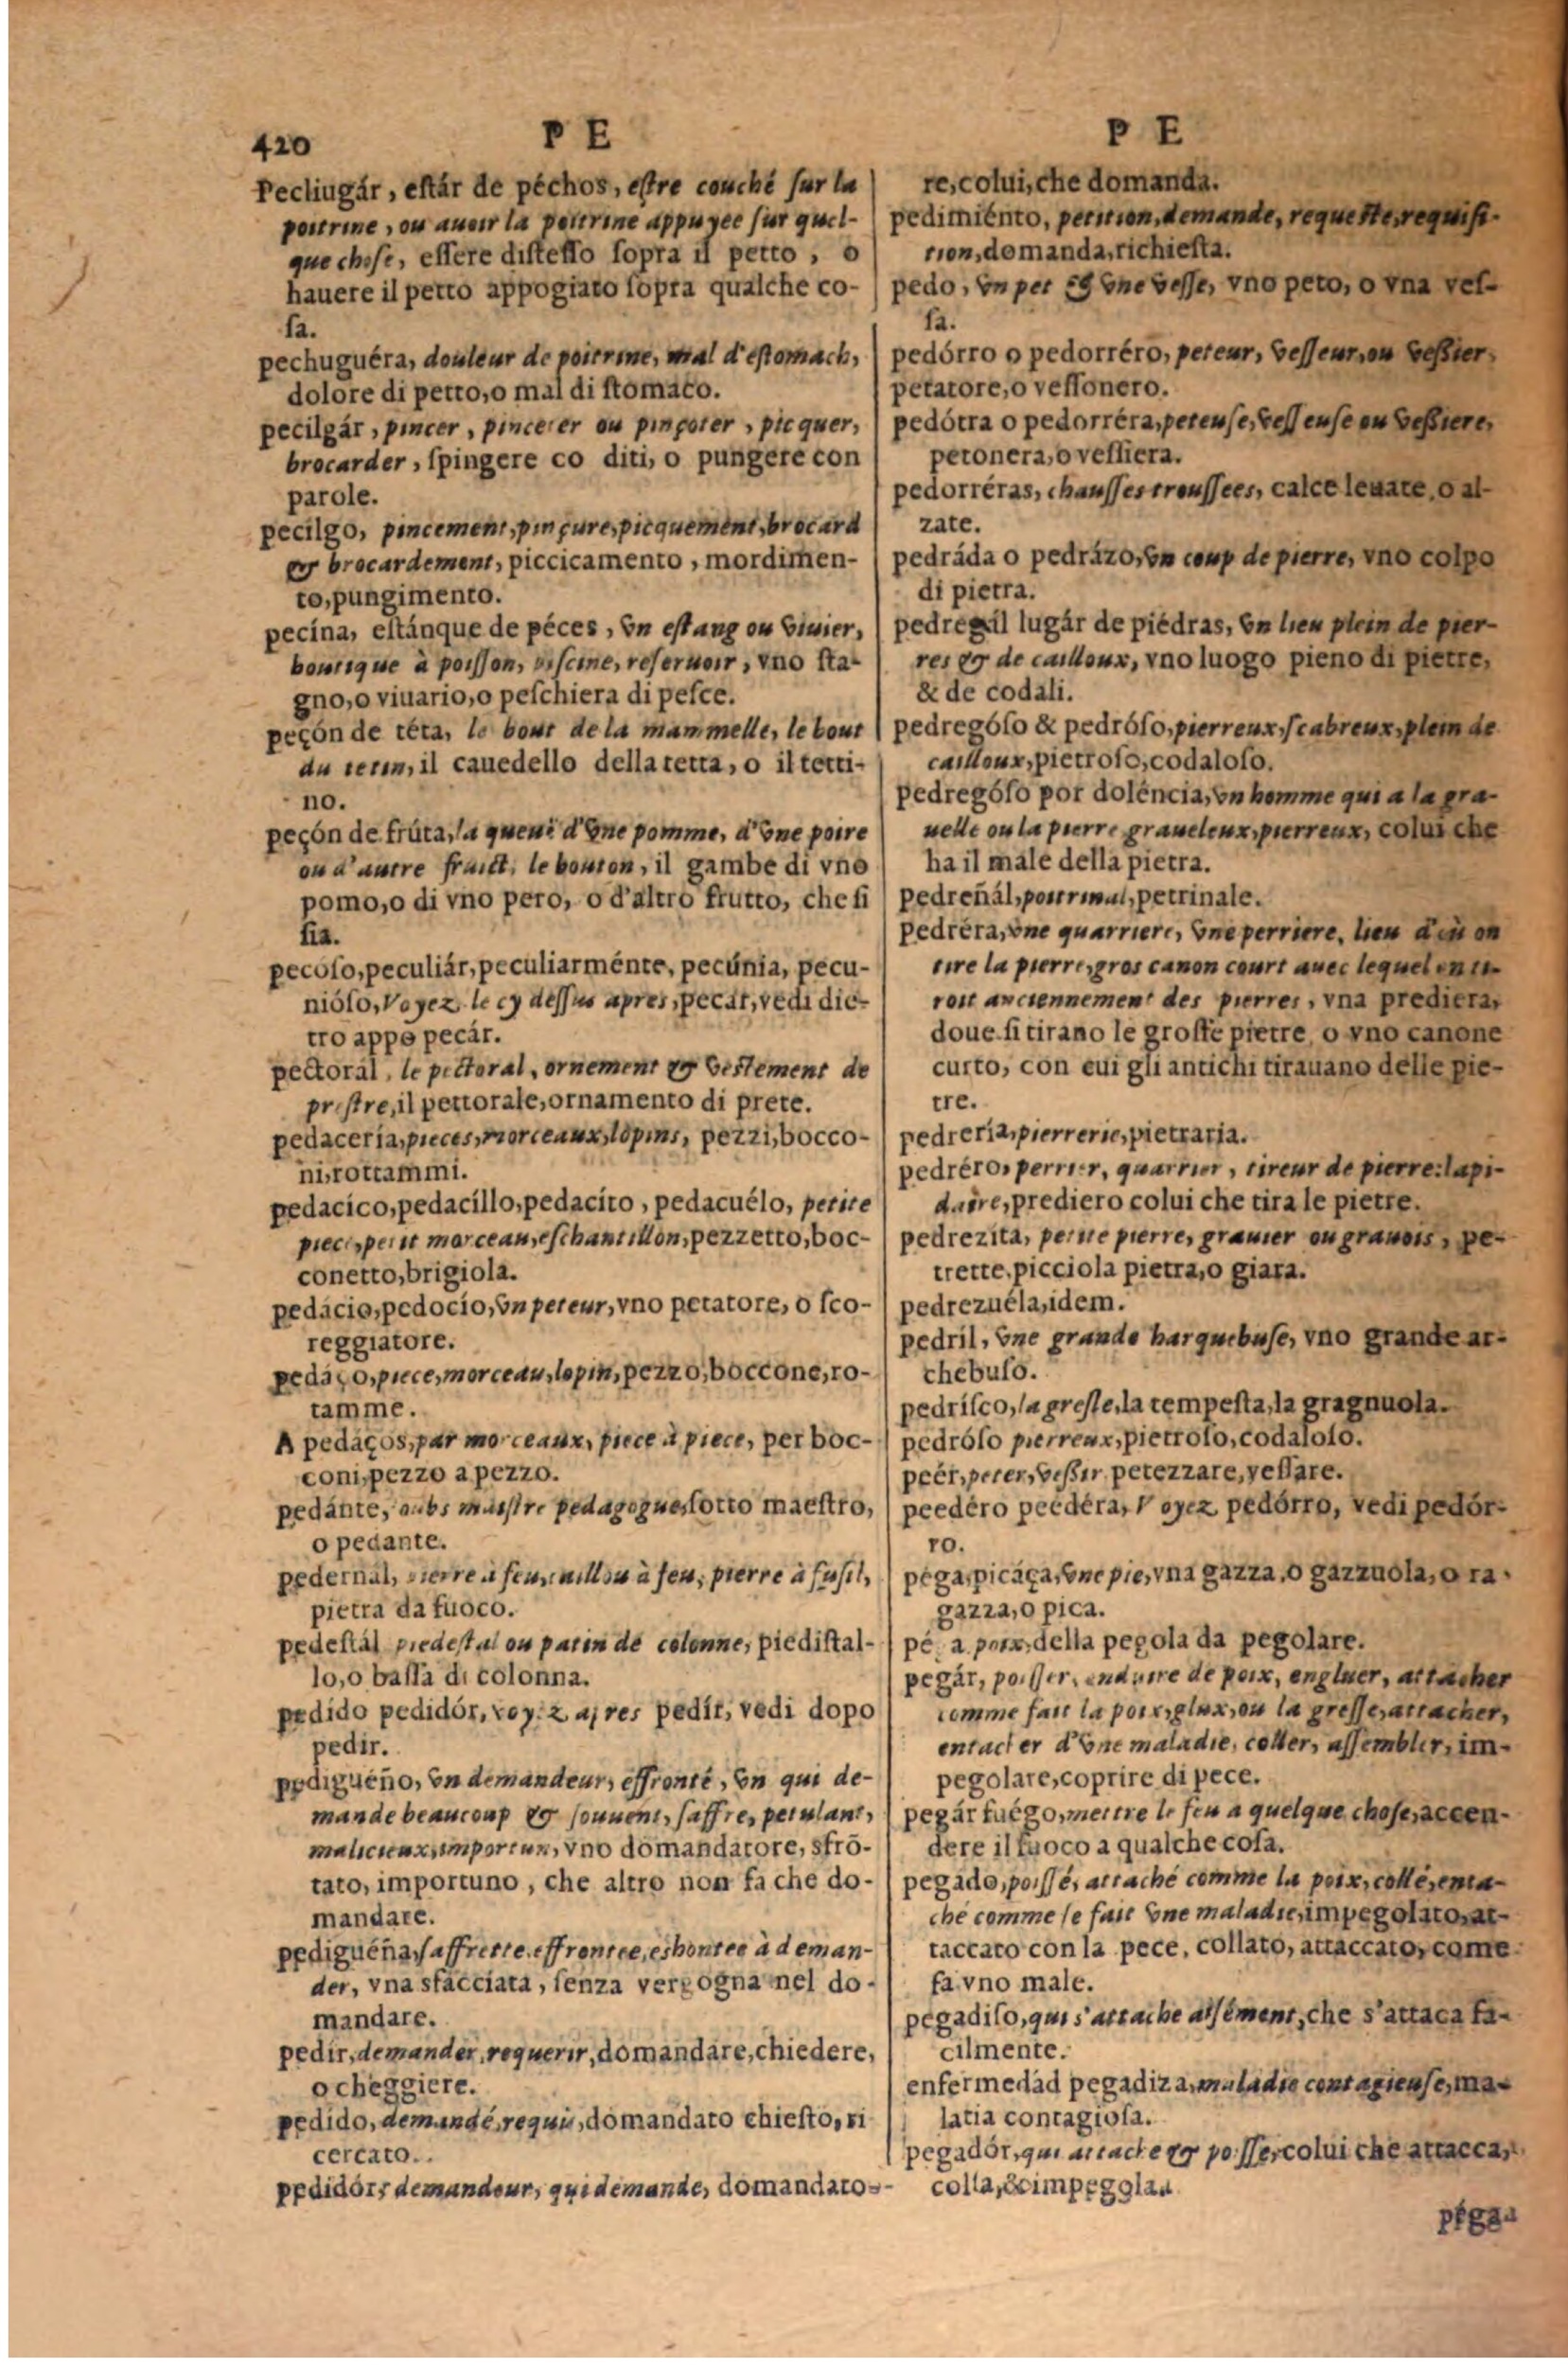 420
P E
P E
Pecliugár, eſtár de péchos, eſtre couché ſur la
poitrine, ou auoir la poitrine appuyee ſur quel-
que choſe, eſſere diſteſſo ſopra il petto, o
hauere il petto appogiato ſopra qualche co-
ſa.
pechuguéra, douleur de poitrine, mal d'eſtomach,
dolore di petto, o mal di ſtomaco.
pecilgár, pincer, pinceter ou pinçoter, picquer,
brocarder, ſpingere co diti, o pungere con
parole.
pecilgo, pincement, pinçure, picquement, brocard
& brocardement, piccicamento, mordimen-
to, pungimento.
pecína, eſtánque de péces, vn eſtang ou viuier,
boutique à poiſſon, piſcine, reſeruoir, vno ſta-
gno, o viuario, o peſchiera di peſce.
peçón de téta, le bout de la mammelle, le bout
du tetin, il cauedello della tetta, o il tetti-
no.
peçón de frúta, la queuë d'vne pomme, d'vne poire
ou d'autre fruict, le bouton, il gambe di vno
pomo, o di vno pero, o d'altro frutto, che ſi
ſia.
pecoſo, peculiár, peculiarménte, pecúnia, pecu-
nióſo, Voyez le cy deſſus apres, pecar, vedi die-
tro appo pecár.
pectorál, le pectoral, ornement & veſtement de
preſtre, il pettorale, ornamento di prete.
pedacería, pieces, morceaux, lopins, pezzi, bocco-
ni, rottammi.
pedacíco, pedacíllo, pedacíto, pedacuélo, petite
piece, petit morceau, eſchantillon, pezzetto, boc-
conetto, brigiola.
pedácio, pedocío, vn peteur, vno petatore, o ſco-
reggiatore.
pedáço, piece, morceau, lopin, pezzo, boccone, ro-
tamme.
A pedaços, par morceaux, piece à piece, per boc-
coni, pezzo a pezzo.
pedánte, ſoubs maiſtre pedagogue, ſotto maeſtro,
o pedante.
pedernál, pierre à feu, caillou à feu, pierre à fuſil,
pietra da fuoco.
pedeſtál piedeſtal ou patin de colonne, piediſtal-
lo, o baſſa di colonna.
pedido pedidór, voyez apres pedír, vedi dopo
pedir.
pedigueño, vn demandeur, effronté, vn qui de-
mande beaucoup & ſouuent, ſaffre, petulant,
malicieux, importun, vno domandatore, sfrõ-
tato, importuno, che altro non fa che do-
mandare.
pediguéña, ſaffrette, effrontee, eshontee à deman-
der, vna sfacciata, ſenza vergogna nel do-
mandare.
pedir, demander, requerir, domandare, chiedere,
o cheggiere.
pedído, demandé, requis, domandato chieſto, ri
cercato.
pedidór, demandeur, qui demande, domandato-
re, colui, che domanda.
pedimiénto, petition, demande, requeſte, requiſi-
tion, domanda, richieſta.
pedo, vn pet & vne veſſe, vno peto, o vna veſ-
ſa.
pedórro o pedorréro, peteur, veſſeur, ou veſſier,
petatore, o veſſonero.
pedórra o pedorréra, peteuſe, veſſeuſe ou veſſiere,
petonera, o veſſiera.
pedorréras, chauſſes trouſſees, calce leuate, o al-
zate.
pedráda o pedrázo, vn coup de pierre, vno colpo
di pietra.
pedregál lugár de piédras, vn lieu plein de pier-
res & de cailloux, vno luogo pieno di pietre,
& de codali.
pedregóſo & pedróſo, pierreux, ſcabreux, plein de
cailloux, pietroſo, codaloſo.
pedregóſo por doléncia, vn homme qui a la gra-
uelle ou la pierre graueleux, pierreux, colui che
ha il male della pietra.
pedreñál, poitrinal, petrinale.
pedréra, vne quarriere, vne perriere, lieu d'où on
tire la pierre, gros canon court auec lequel on ti-
roit anciennement des pierres, vna prediera,
doue ſi tirano le groſſe pietre, o vno canone
curto, con cui gli antichi tirauano delle pie-
tre.
pedrería, pierrerie, pietraria.
pedréro, perrier, quarrier, tireur de pierre: lapi-
daire, prediero colui che tira le pietre.
pedrezíta, petite pierre, grauier ou grauois, pe-
trette, picciola pietra, o giara.
pedrezuéla, idem.
pedríl, vne grande harquebuſe, vno grande ar-
chebuſo.
pedríſco, la greſle, la tempeſta, la gragnuola.
pedróſo pierreux, pietroſo, codaloſo.
peér, peter, veſſir petezzare, veſſare.
peedéro peedéra, Voyez pedórro, vedi pedór-
ro.
péga, picáça, vne pie, vna gazza, o gazzuola, o ra-
gazza, o pica.
pé a poix, della pegola da pegolare.
pegár, poiſſer, enduire de poix, engluer, attacher
comme fait la poix, glux, ou la greſſe, attacher,
entacher d'vne maladie, coller, aſſembler, im-
pegolare, coprire di pece.
pegár fuégo, mettre le feu a quelque choſe, accen-
dere il fuoco a qualche coſa.
pegado, poiſſé, attaché comme la poix, collé, enta-
ché comme ſe fait vne maladie, impegolato, at-
taccato con la pece, collato, attaccato, come
fa vno male.
pegadiſo, qui s'attache aiſément, che s'attaca fa-
cilmente.
enfermedád pegadiza, maladie contagieuſe, ma-
latia contagioſa.
pegadór, qui attache & poiſſe, colui che attacca,
colla, & impegola.
péga-